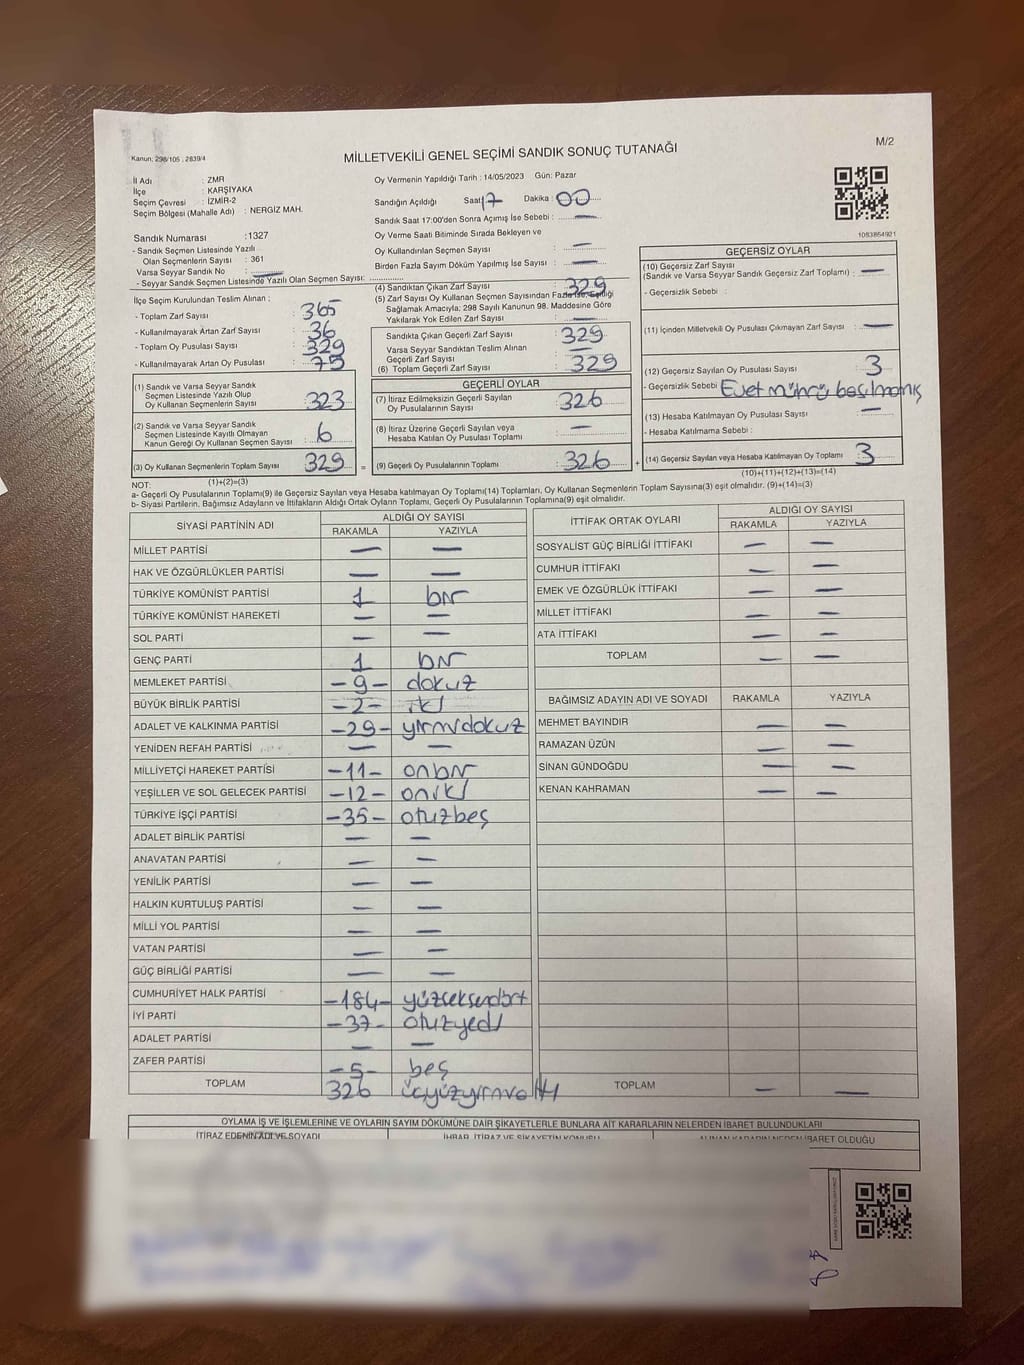 M/2
Kanun: 298/105 ; 2839/4
MİLLETVEKİLİ GENEL SEÇİMİ SANDIK SONUÇ TUTANAĞI
İl Adı : ZMR
İlçe : KARŞIYAKA
Seçim Çevresi : İZMİR-2
Seçim Bölgesi (Mahalle Adı) : NERGİZ MAH.
Oy Vermenin Yapıldığı Tarih : 14/05/2023 Gün: Pazar
Sandığın Açıldığı Saat 17 Dakika : 00
Sandık Saat 17:00'den Sonra Açımış İse Sebebi : —
Oy Verme Saati Bitiminde Sırada Bekleyen ve
Oy Kullandırılan Seçmen Sayısı : —
Birden Fazla Sayım Döküm Yapılmış İse Sayısı : —
1083854921
Sandık Numarası :1327
- Sandık Seçmen Listesinde Yazılı
Olan Seçmenlerin Sayısı : 361
Varsa Seyyar Sandık No : —
- Seyyar Sandık Seçmen Listesinde Yazılı Olan Seçmen Sayısı:
İlçe Seçim Kurulundan Teslim Alınan :
- Toplam Zarf Sayısı : 365
- Kullanılmayarak Artan Zarf Sayısı : 36
- Toplam Oy Pusulası Sayısı : 329
- Kullanılmayarak Artan Oy Pusulası : 75
(1) Sandık ve Varsa Seyyar Sandık
Seçmen Listesinde Yazılı Olup
Oy Kullanan Seçmenlerin Sayısı : 323
(2) Sandık ve Varsa Seyyar Sandık
Seçmen Listesinde Kayıtlı Olmayan
Kanun Gereği Oy Kullanan Seçmen Sayısı : 6
(3) Oy Kullanan Seçmenlerin Toplam Sayısı : 329 =
(4) Sandıktan Çıkan Zarf Sayısı : 329
(5) Zarf Sayısı Oy Kullanan Seçmen Sayısından Fazla ise, Eşitliği
Sağlamak Amacıyla; 298 Sayılı Kanunun 98. Maddesine Göre
Yakılarak Yok Edilen Zarf Sayısı : —
Sandıkta Çıkan Geçerli Zarf Sayısı : 329
Varsa Seyyar Sandıktan Teslim Alınan
Geçerli Zarf Sayısı : —
(6) Toplam Geçerli Zarf Sayısı : 329
GEÇERLİ OYLAR
(7) İtiraz Edilmeksizin Geçerli Sayılan
Oy Pusulalarının Sayısı : 326
(8) İtiraz Üzerine Geçerli Sayılan veya
Hesaba Katılan Oy Pusulası Toplamı : —
(9) Geçerli Oy Pusulalarının Toplamı : 326 +
GEÇERSİZ OYLAR
(10) Geçersiz Zarf Sayısı
(Sandık ve Varsa Seyyar Sandık Geçersiz Zarf Toplamı) : —
- Geçersizlik Sebebi :
(11) İçinden Milletvekili Oy Pusulası Çıkmayan Zarf Sayısı : —
(12) Geçersiz Sayılan Oy Pusulası Sayısı : 3
- Geçersizlik Sebebi Evet mührü basılmamış
(13) Hesaba Katılmayan Oy Pusulası Sayısı : —
- Hesaba Katılmama Sebebi :
(14) Geçersiz Sayılan veya Hesaba Katılmayan Oy Toplamı : 3
NOT: (1)+(2)=(3) (10)+(11)+(12)+(13)=(14)
a- Geçerli Oy Pusulalarının Toplamı(9) ile Geçersiz Sayılan veya Hesaba katılmayan Oy Toplamı(14) Toplamları, Oy Kullanan Seçmenlerin Toplam Sayısına(3) eşit olmalıdır. (9)+(14)=(3)
b- Siyasi Partilerin, Bağımsız Adayların ve İttifakların Aldığı Oyların Toplamı, Geçerli Oy Pusulalarının Toplamına(9) eşit olmalıdır.
SİYASİ PARTİNİN ADI ALDIĞI OY SAYISI
RAKAMLA YAZIYLA
MİLLET PARTİSİ — —
HAK VE ÖZGÜRLÜKLER PARTİSİ — —
TÜRKİYE KOMÜNİST PARTİSİ 1 bir
TÜRKİYE KOMÜNİST HAREKETİ — —
SOL PARTİ — —
GENÇ PARTİ 1 bir
MEMLEKET PARTİSİ -9- dokuz
BÜYÜK BİRLİK PARTİSİ -2- iki
ADALET VE KALKINMA PARTİSİ -29- yirmidokuz
YENİDEN REFAH PARTİSİ — —
MİLLİYETÇİ HAREKET PARTİSİ -11- onbir
YEŞİLLER VE SOL GELECEK PARTİSİ -12- oniki
TÜRKİYE İŞÇİ PARTİSİ -35- otuzbeş
ADALET BİRLİK PARTİSİ — —
ANAVATAN PARTİSİ — —
YENİLİK PARTİSİ — —
HALKIN KURTULUŞ PARTİSİ — —
MİLLİ YOL PARTİSİ — —
VATAN PARTİSİ — —
GÜÇ BİRLİĞİ PARTİSİ — —
CUMHURİYET HALK PARTİSİ -184- yüzseksendört
İYİ PARTİ -37- otuzyedi
ADALET PARTİSİ — —
ZAFER PARTİSİ -5- beş
TOPLAM 326 üçyüzyirmialtı
İTTİFAK ORTAK OYLARI ALDIĞI OY SAYISI
RAKAMLA YAZIYLA
SOSYALİST GÜÇ BİRLİĞİ İTTİFAKI — —
CUMHUR İTTİFAKI — —
EMEK VE ÖZGÜRLÜK İTTİFAKI — —
MİLLET İTTİFAKI — —
ATA İTTİFAKI — —
TOPLAM — —
BAĞIMSIZ ADAYIN ADI VE SOYADI RAKAMLA YAZIYLA
MEHMET BAYINDIR — —
RAMAZAN ÜZÜN — —
SİNAN GÜNDOĞDU — —
KENAN KAHRAMAN — —
TOPLAM — —
OYLAMA İŞ VE İŞLEMLERİNE VE OYLARIN SAYIM DÖKÜMÜNE DAİR ŞİKAYETLERLE BUNLARA AİT KARARLARIN NELERDEN İBARET BULUNDUKLARI
İTİRAZ EDENİN ADI VE SOYADI İHBAR, İTİRAZ VE ŞİKAYETİN KONUSU ALINAN KARARIN NEDEN İBARET OLDUĞU